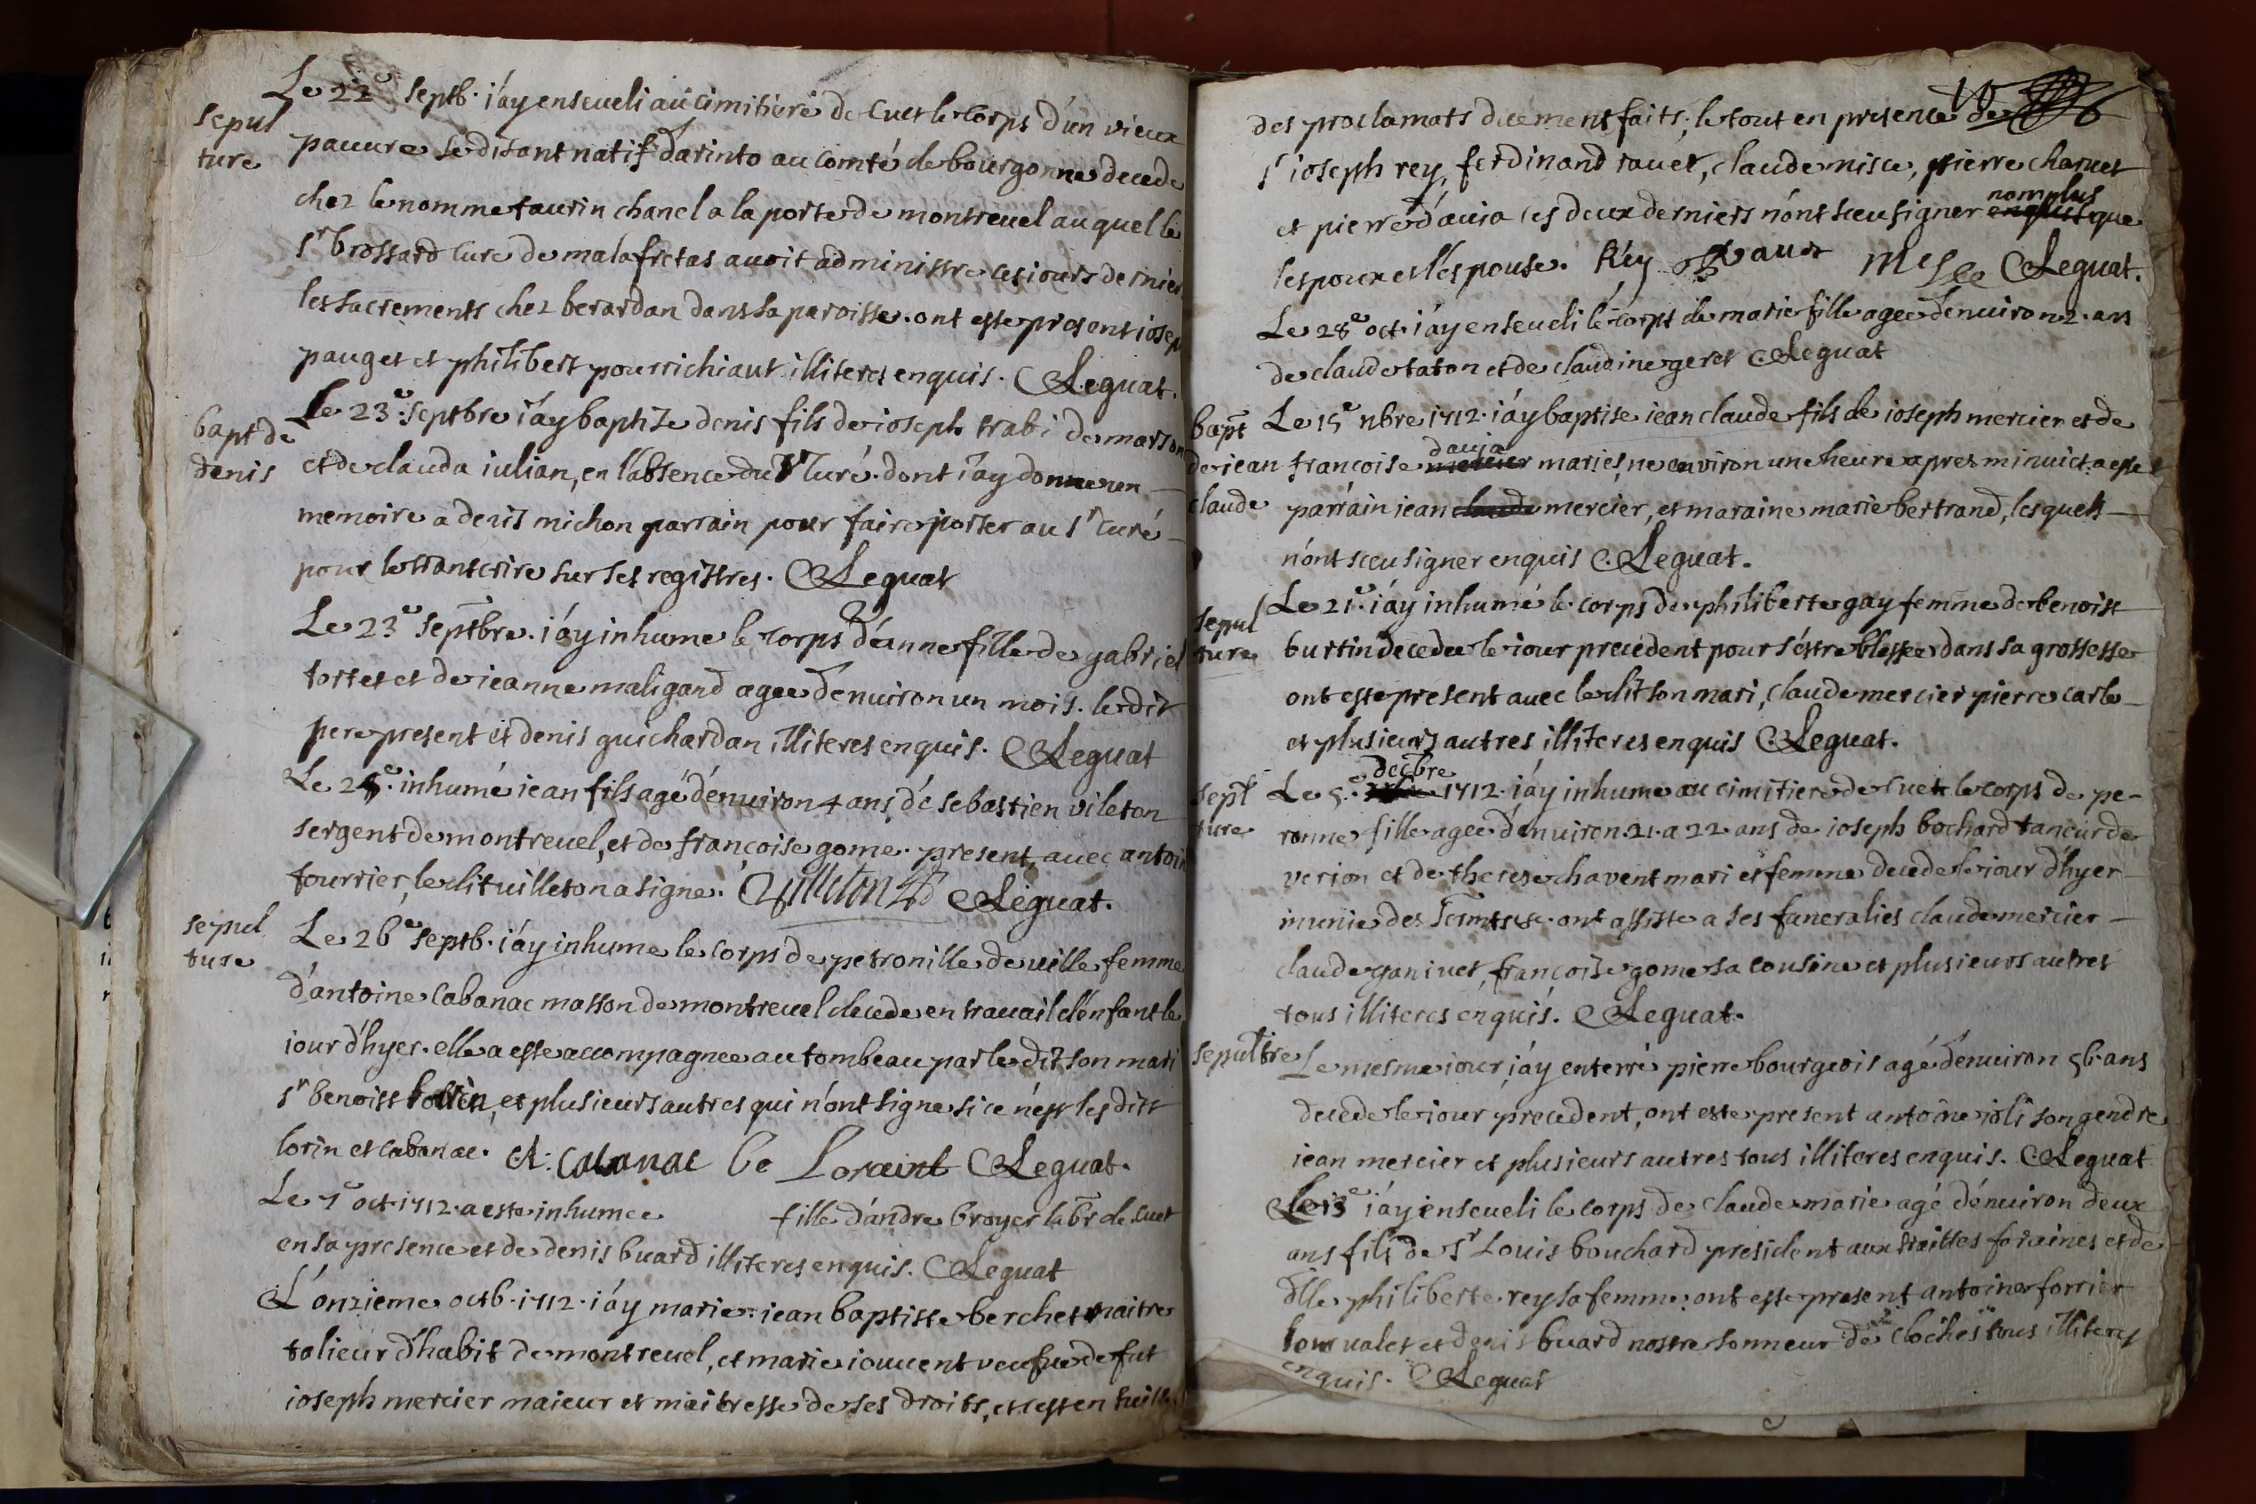 Le 22e septb. i'ay enseueli au cimitiere de Cuet le corps d'un vieux
sepul
ture
pauure se disant natif d'arinto au comté de bourgonne decede
chez le nomme taurin chanel a la porte de montreuel auquel le
sr brossard curé de malafretas auoit administre ces iours dernier
les sacrements chez berardan dans sa paroisse. ont este present iosep
pauget et philibert pourrichiaut illiteres enquis. Leguat.
bapt de
denis
Le 23e. septbre i'ay baptize denis fils de ioseph trabi de marson
et de clauda iulian, en l'absence du sr curé. dont i'ay donne un
memoire a denis michon parrain pour faire porter au sr curé
pour le transcrire sur ses registres. Leguat
Le 23e septbre. i'ay inhume le corps d'anne fille de gabriel
tortet et de ieanne maligand agee d'enuiron un mois. le dit
pere present et denis guichardan illiteres enquis. Leguat
Le 25e. inhumé iean fils agé d'enuiron 4 ans, de sebastien vileton
sergent de montreuel, et de francoise gome. present, auec antoin
fourrier, le dit uilleton a signe. Quilleton Leguat.
sepul
ture
Le 26e septb. i'ay inhume le corps de petronille de uille femme
d'antoine cabanac masson de montreuel decede en trauail d'enfant le
iour d'hyer. elle a este accompagnee au tombeau par le dit son mari
sr benoist lorin, et plusieurs autres qui n'ont signe si ce n'est les dits
lorin et cabanac. A. Cabanac be Loraint Leguat.
Le 7e oct. 1712. a este inhumee fille d'andre broyer labr de cuet
en sa presence et de denis buard illiteres enquis. Leguat
L'onzieme octb. 1712. i'ay marie. iean baptiste berchet maitre
talieur d'habit de montreuel, et marie iouuent veufue de fut
ioseph mercier maieur et maitresse de ses droits, et
des proclamats duement faits; le tout en presence de
sr ioseph rey, ferdinand rauet, claude nisce, pierre charuet
et pierre d'auia ces deux derniers n'ont sceu signer nomplus que
l'espoux et l'espouse. Rey rauet Misce Leguat.
Le 28e oct. i'ay enseueli le corps de marie fille agee d'enuiron 2. ans
de claude taton et de claudine geret Leguat
bapt
de iean
claude
Le 15e nbre 1712. i'ay baptise iean claude fils de ioseph mercier et de
francoise dauia maries, ne enuiron une heure apres minuict. a este
parrain iean mercier, et maraine marie bertrand, lesquels
n'ont sceu signer enquis Leguat.
sepul
ture
Le 21e. i'ay inhumé le corps de philiberte gay femme de benoist
burtin decedee le iour precedent pour s'estre blessee dans sa grossesse
ont este present auec le dit son mari, claude mercier pierre carle
et plusieurs autres illiteres enquis Leguat.
sepl
ture
Le 5e. decbre 1712. i'ay inhume au cimitiere de Cuet le corps de pe-
ronne fille agee d'enuiron 21. a 22 ans de ioseph bochard taneur de
verion et de therese chavent mari et femme decede le iour d'hyer
munie des Scmts &c. ont assiste a ses funeralies claude mercier
claude ganiuet, francoise gome sa cousine et plusieurs autres
tous illiteres enquis. Leguat.
sepultre
Le mesme iour i'ay enterré pierre bourgeois agé d'enuiron 56. ans
decede le iour precedent, ont este present antoine ioli son gendre
iean mercier et plusieurs autres tous illiteres enquis. Leguat
Le 13e i'ay enseueli le corps de claude marie agé d'enuiron deux
ans fils de Sr Louis bouchard president aux traittes foraines et de
dlle philiberte rey sa femme: ont este present antoine forrier
leur ualet et denis buard nostre sonneur de cloches tous illiteres
enquis. Leguat